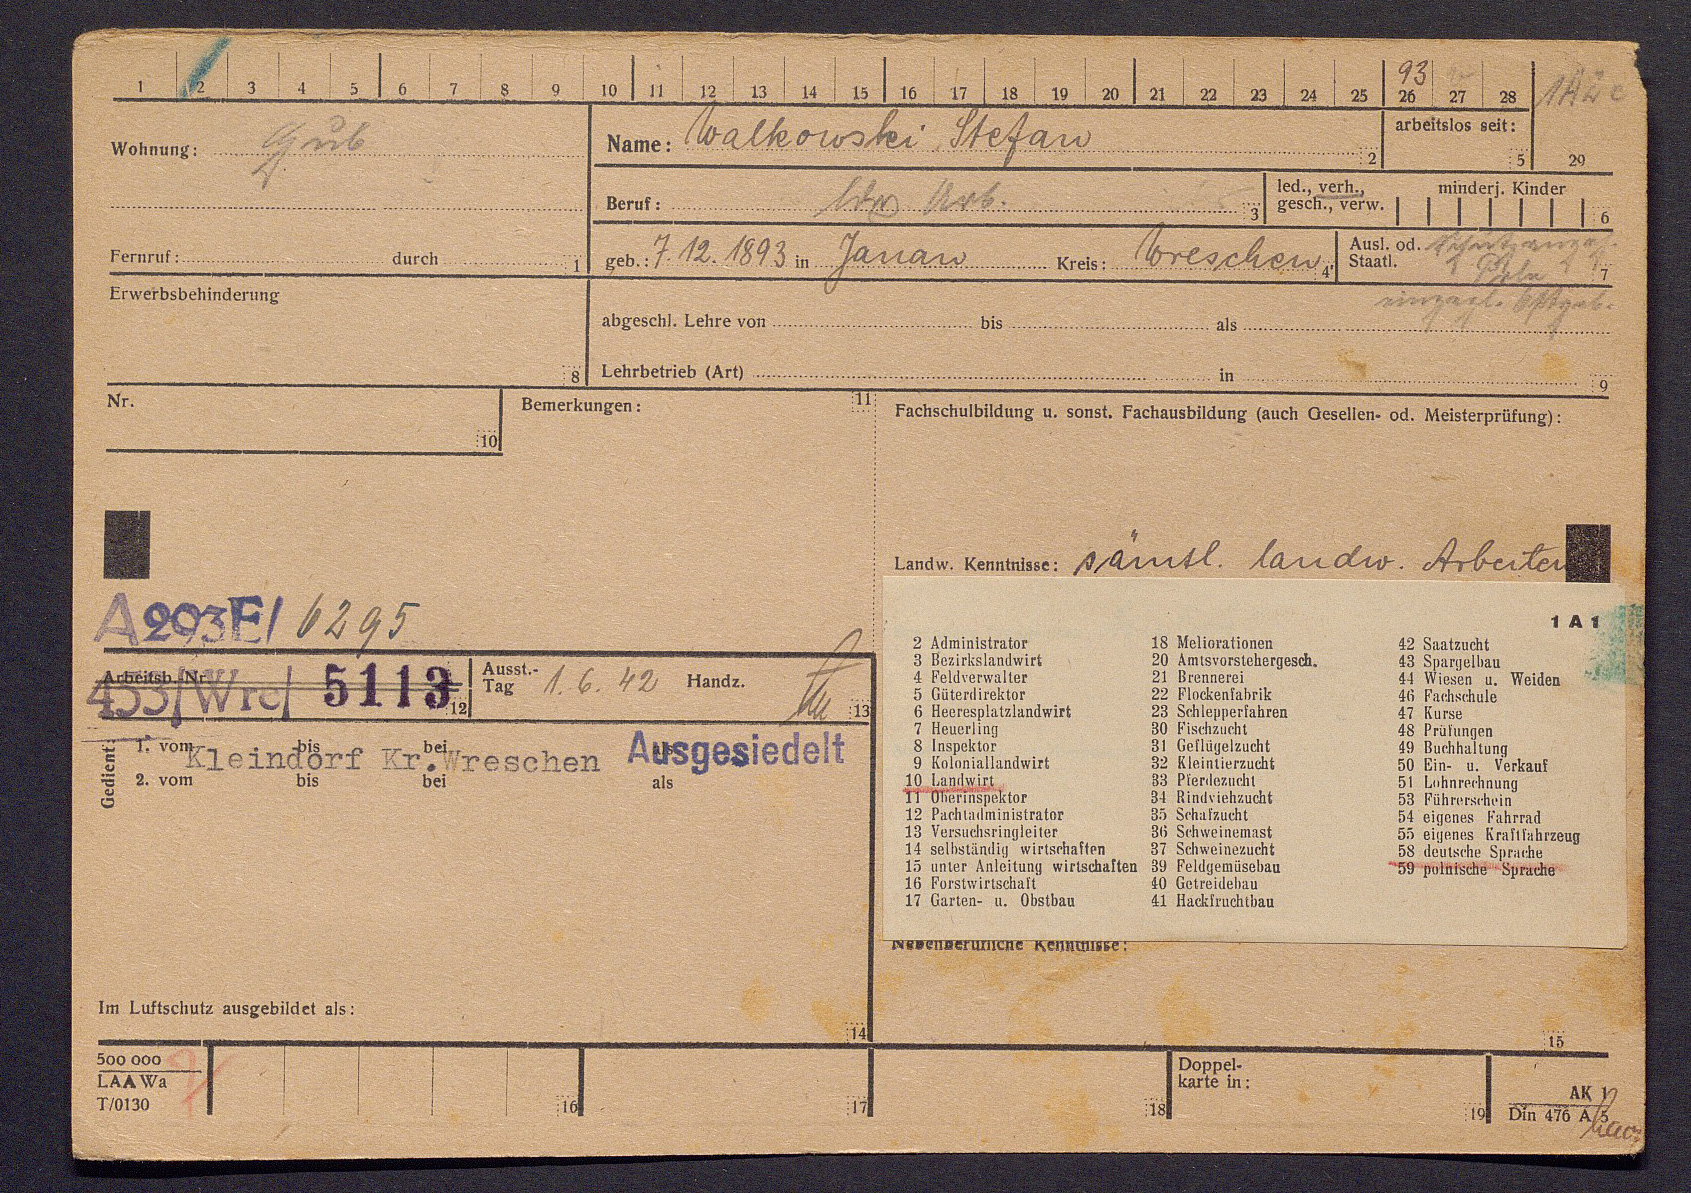 1 2 3 4 5 6 7 8 9 10 11 12 13 14 15 16 17 18 19 20 21 22 23 24 25 26 27 28
93
Wohnung:
Name: Walkowski Stefan 2
arbeitslos seit: 5
29
Beruf: Arb. 3
led., verh., gesch., verw.
minderj. Kinder 6
Fernruf: durch 1
geb.: 7.12.1893 in Janau Kreis: Wreschen 4
Ausl. od. Staatl. 7
Erwerbsbehinderung 8
abgeschl. Lehre von bis als
Lehrbetrieb (Art) in 9
Nr. 10
Bemerkungen: 11
Fachschulbildung u. sonst. Fachausbildung (auch Gesellen- od. Meisterprüfung):
Landw. Kenntnisse: sämtl. landw. Arbeiten
A 293E/ 6295
Arbeitsb. Nr.
453/Wre/ 5113 12
Ausst.-Tag 1.6.42 Handz. 13
Gedient:
1. vom bis bei als
Kleindorf Kr. Wreschen Ausgesiedelt
2. vom bis bei als
1 A 1
2 Administrator
3 Bezirkslandwirt
4 Feldverwalter
5 Güterdirektor
6 Heeresplatzlandwirt
7 Heuerling
8 Inspektor
9 Koloniallandwirt
10 Landwirt
11 Oberinspektor
12 Pachtadministrator
13 Versuchsringleiter
14 selbständig wirtschaften
15 unter Anleitung wirtschaften
16 Forstwirtschaft
17 Garten- u. Obstbau
18 Meliorationen
20 Amtsvorstehergesch.
21 Brennerei
22 Flockenfabrik
23 Schlepperfahren
30 Fischzucht
31 Geflügelzucht
32 Kleintierzucht
33 Pferdezucht
34 Rindviehzucht
35 Schafzucht
36 Schweinemast
37 Schweinezucht
39 Feldgemüsebau
40 Getreidebau
41 Hackfruchtbau
42 Saatzucht
43 Spargelbau
44 Wiesen u. Weiden
46 Fachschule
47 Kurse
48 Prüfungen
49 Buchhaltung
50 Ein- u. Verkauf
51 Lohnrechnung
53 Führerschein
54 eigenes Fahrrad
55 eigenes Kraftfahrzeug
58 deutsche Sprache
59 polnische Sprache
Nebenberufliche Kenntnisse:
Im Luftschutz ausgebildet als: 14
15
500 000
LAA Wa
T/0130
16
17
Doppel-
karte in: 18
19
AK 1
Din 476 A 5